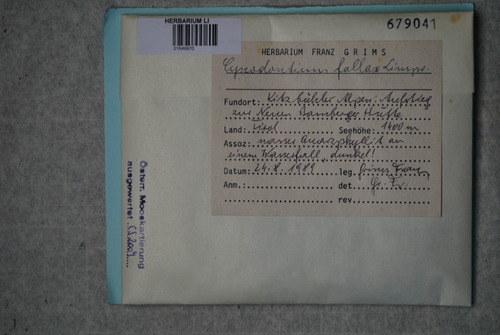 HERBARIUM LI
679041
HERBARIUM FRANZ GRIMS
Cynodontium fallax Limpr.
Fundort: Kitzbühler Alpen: Aufstieg
zur Neuen Bamberger Hütte
Land: Tirol Seehöhe: 1400 m
Assoz: nasser Quarzphyllit an
einem Wasserfall, dunkel!
Datum: 24.8.1989 leg. Grims Franz
Anm.: det. Gr. Fr.
rev.
Österr. Mooskartierung
ausgewertet